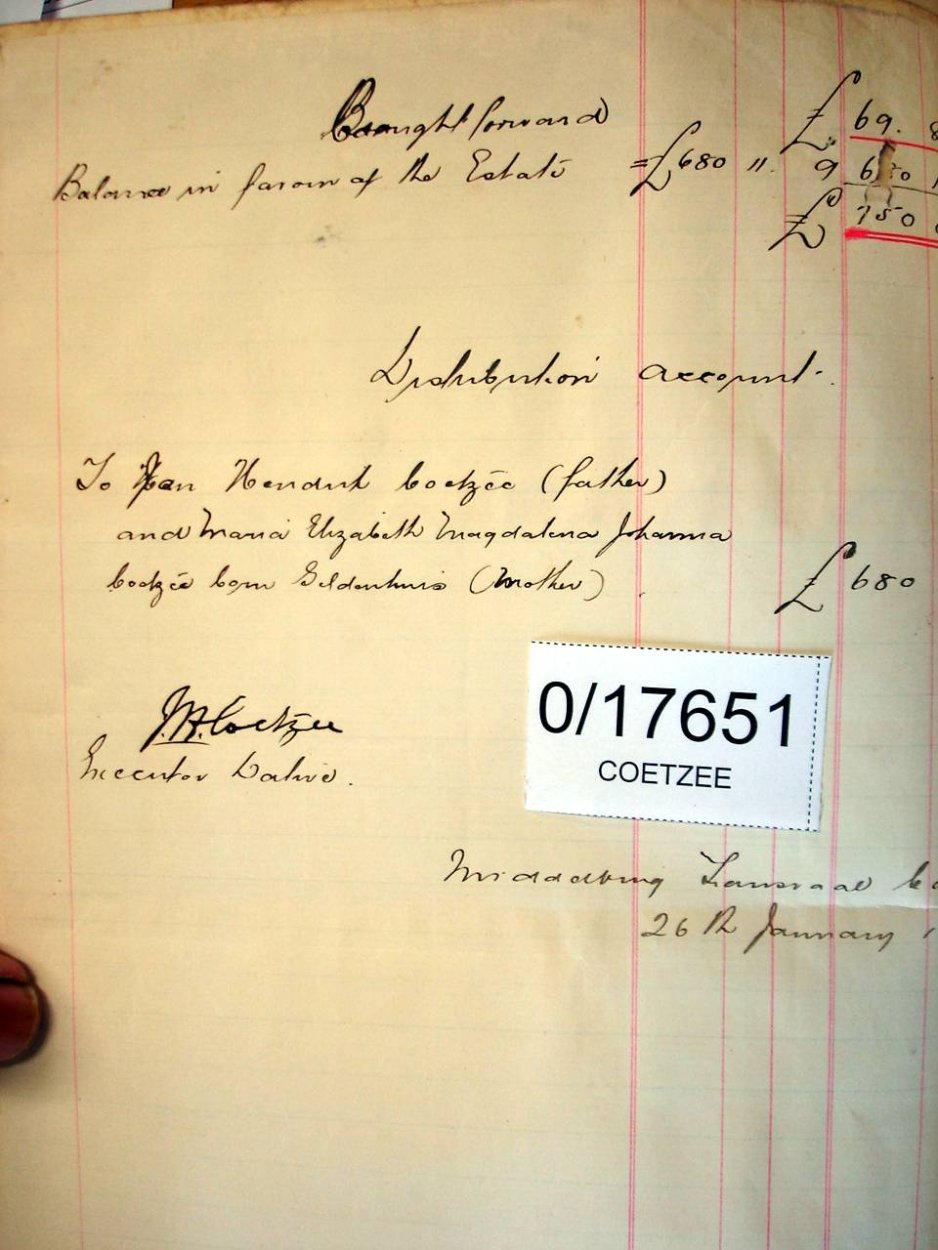 Brought forward £ 69. 8
Balance in favour of the Estate = £680 " 9 680 1
£ 750
Distribution account.
To Jan Hendrik Coetzée (father)
and Maria Elizabeth Magdalena Johanna
Coetzée born Geldenhuis (Mother) £ 680
J.H. Coetzee
Executor Dative.
0/17651
COETZEE
Middelburg Transvaal
26th January